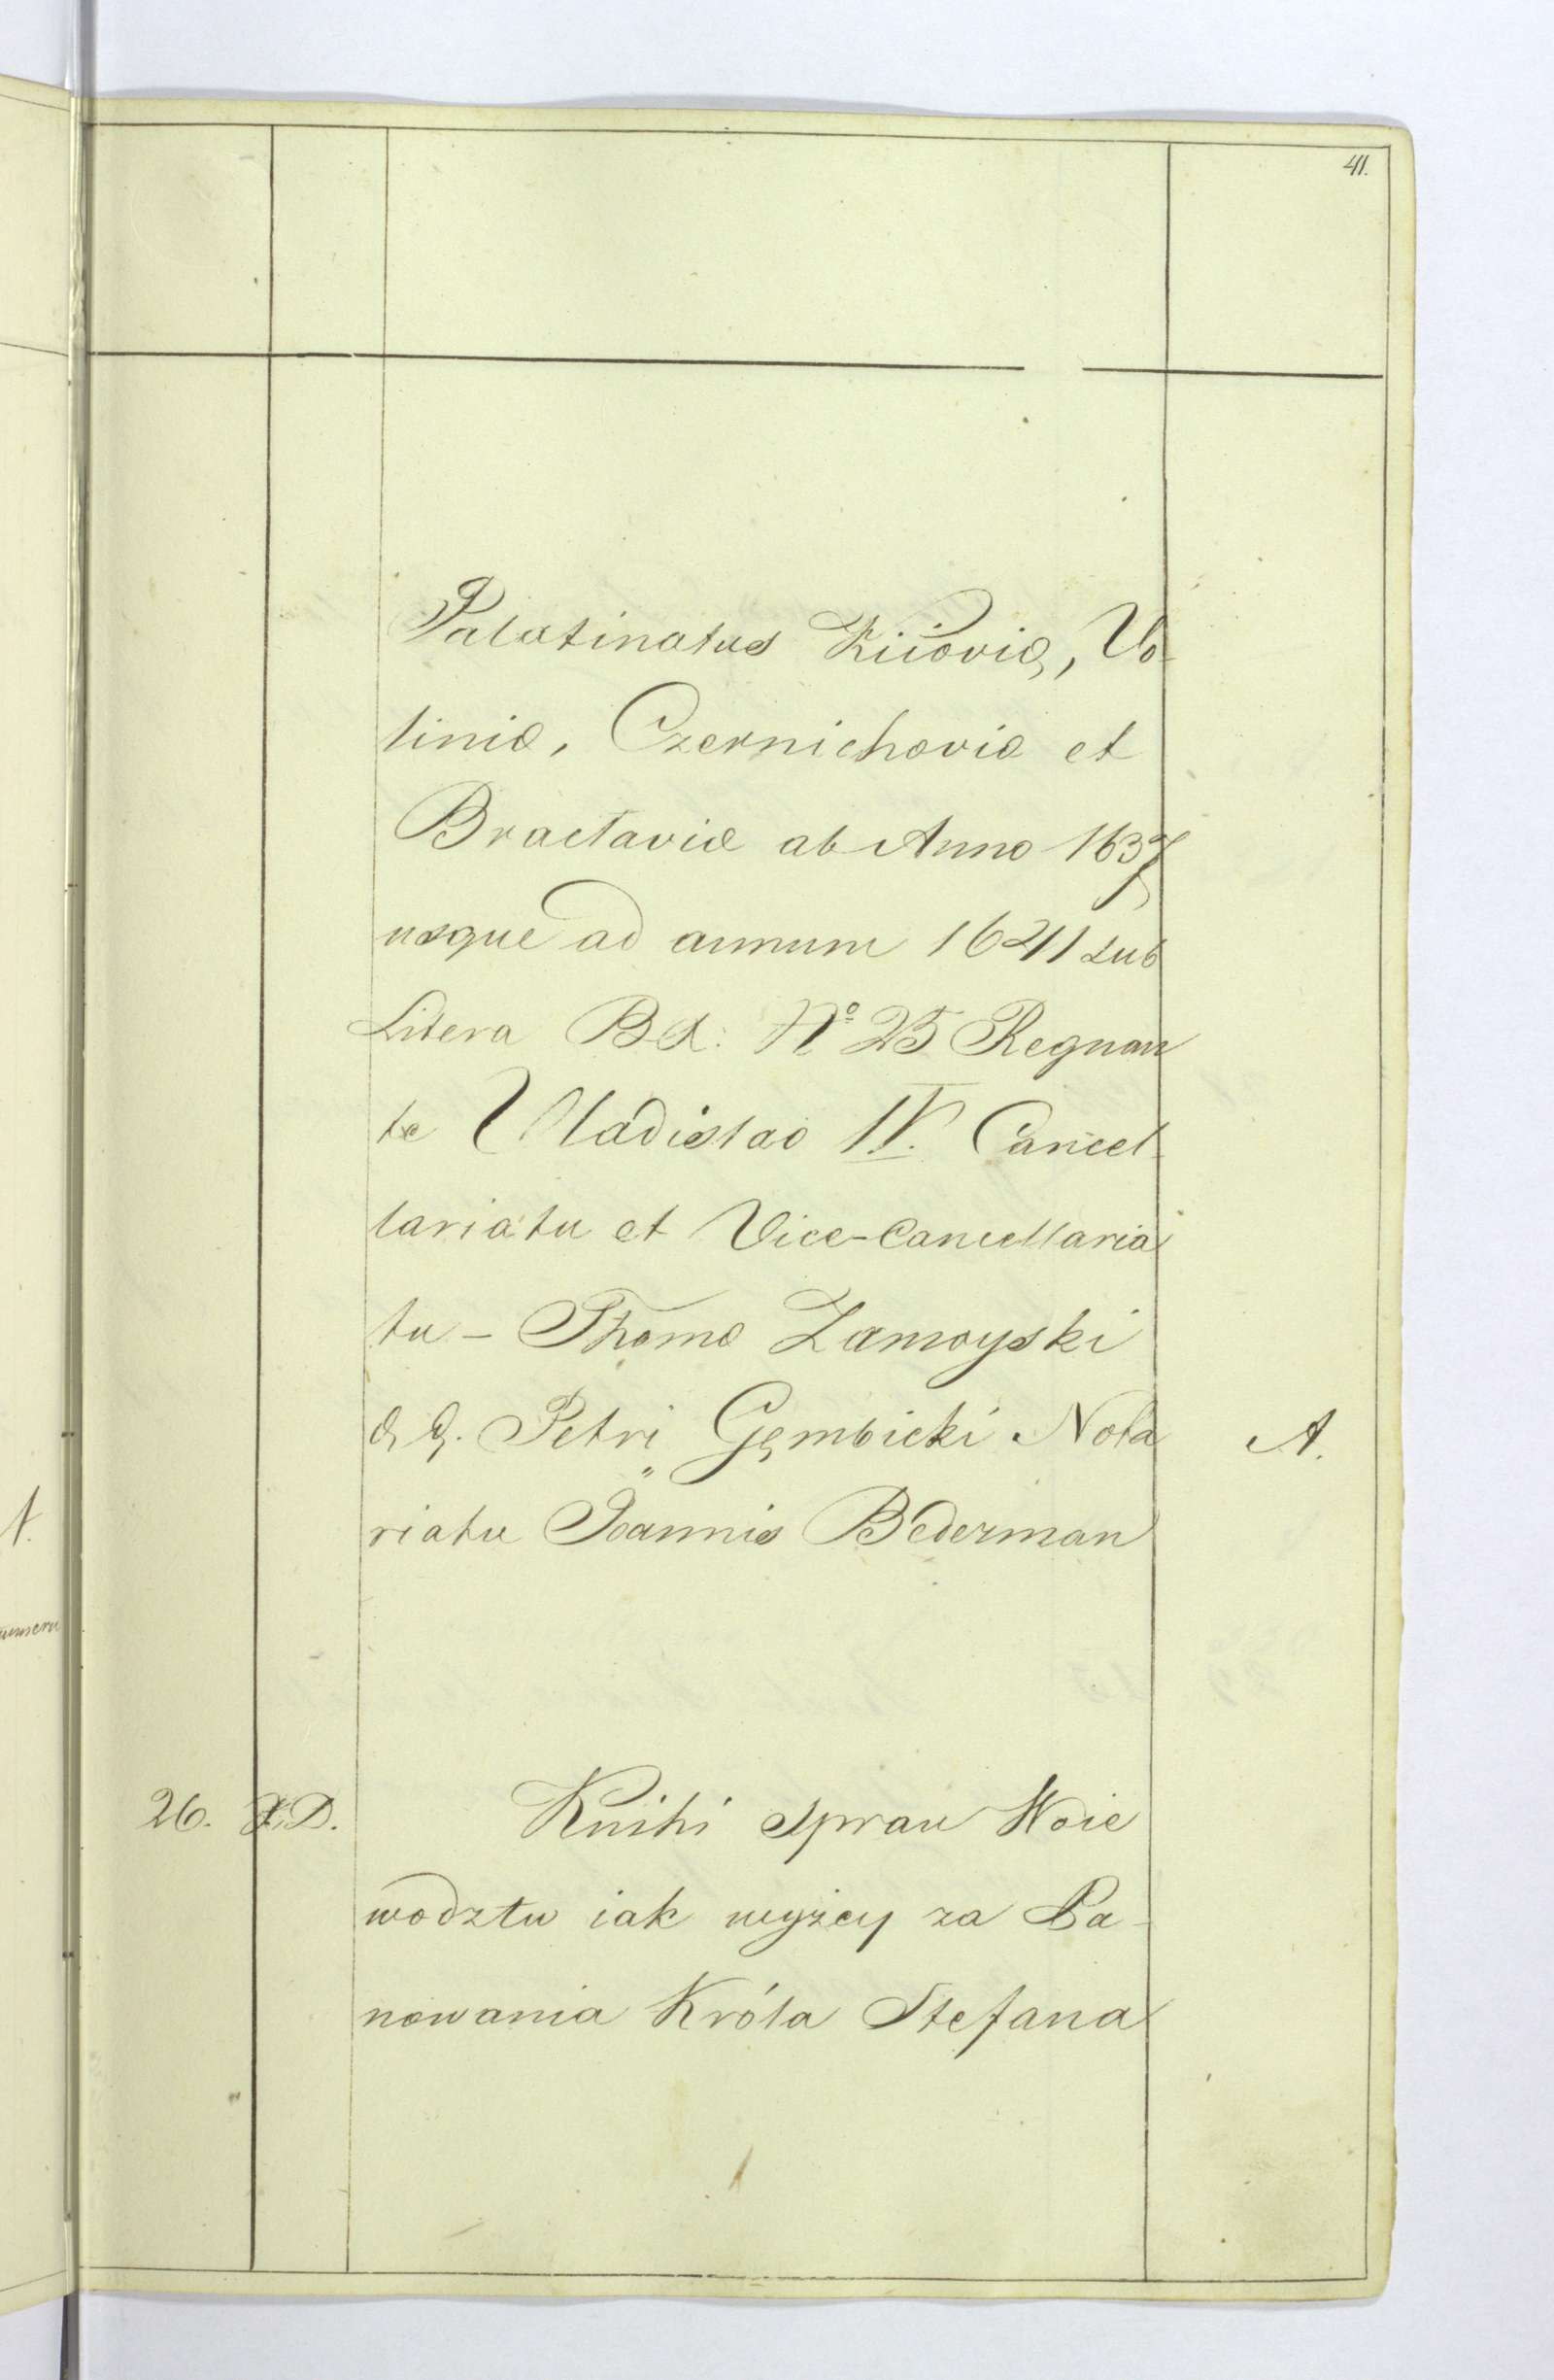 41.
Palatinatus Kiiovię, Vo-
liniæ, Czernichoviæ et
Braclaviæ ab Anno 1637
usque ad annum 1641 sub
Litera B d: Nº 25 Regnan
te Vladislao IV. Cancel-
lariatu et Vice-Cancellaria
tu - Thomæ Zamoyski
Petri Gęmbicki Nota
A.
riatu Joannis Bederman
26. D. Knihi spraw Woie
wodztw iak wyżey za Pa-
nowania Króla Stefana